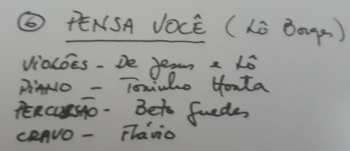 ⑥ PENSA VOCÊ (Lô Borges)
VIOLÕES - De Jesus e Lô
PIANO - Toninho Horta
PERCURSÃO - Beto Guedes
CRAVO - Flávio